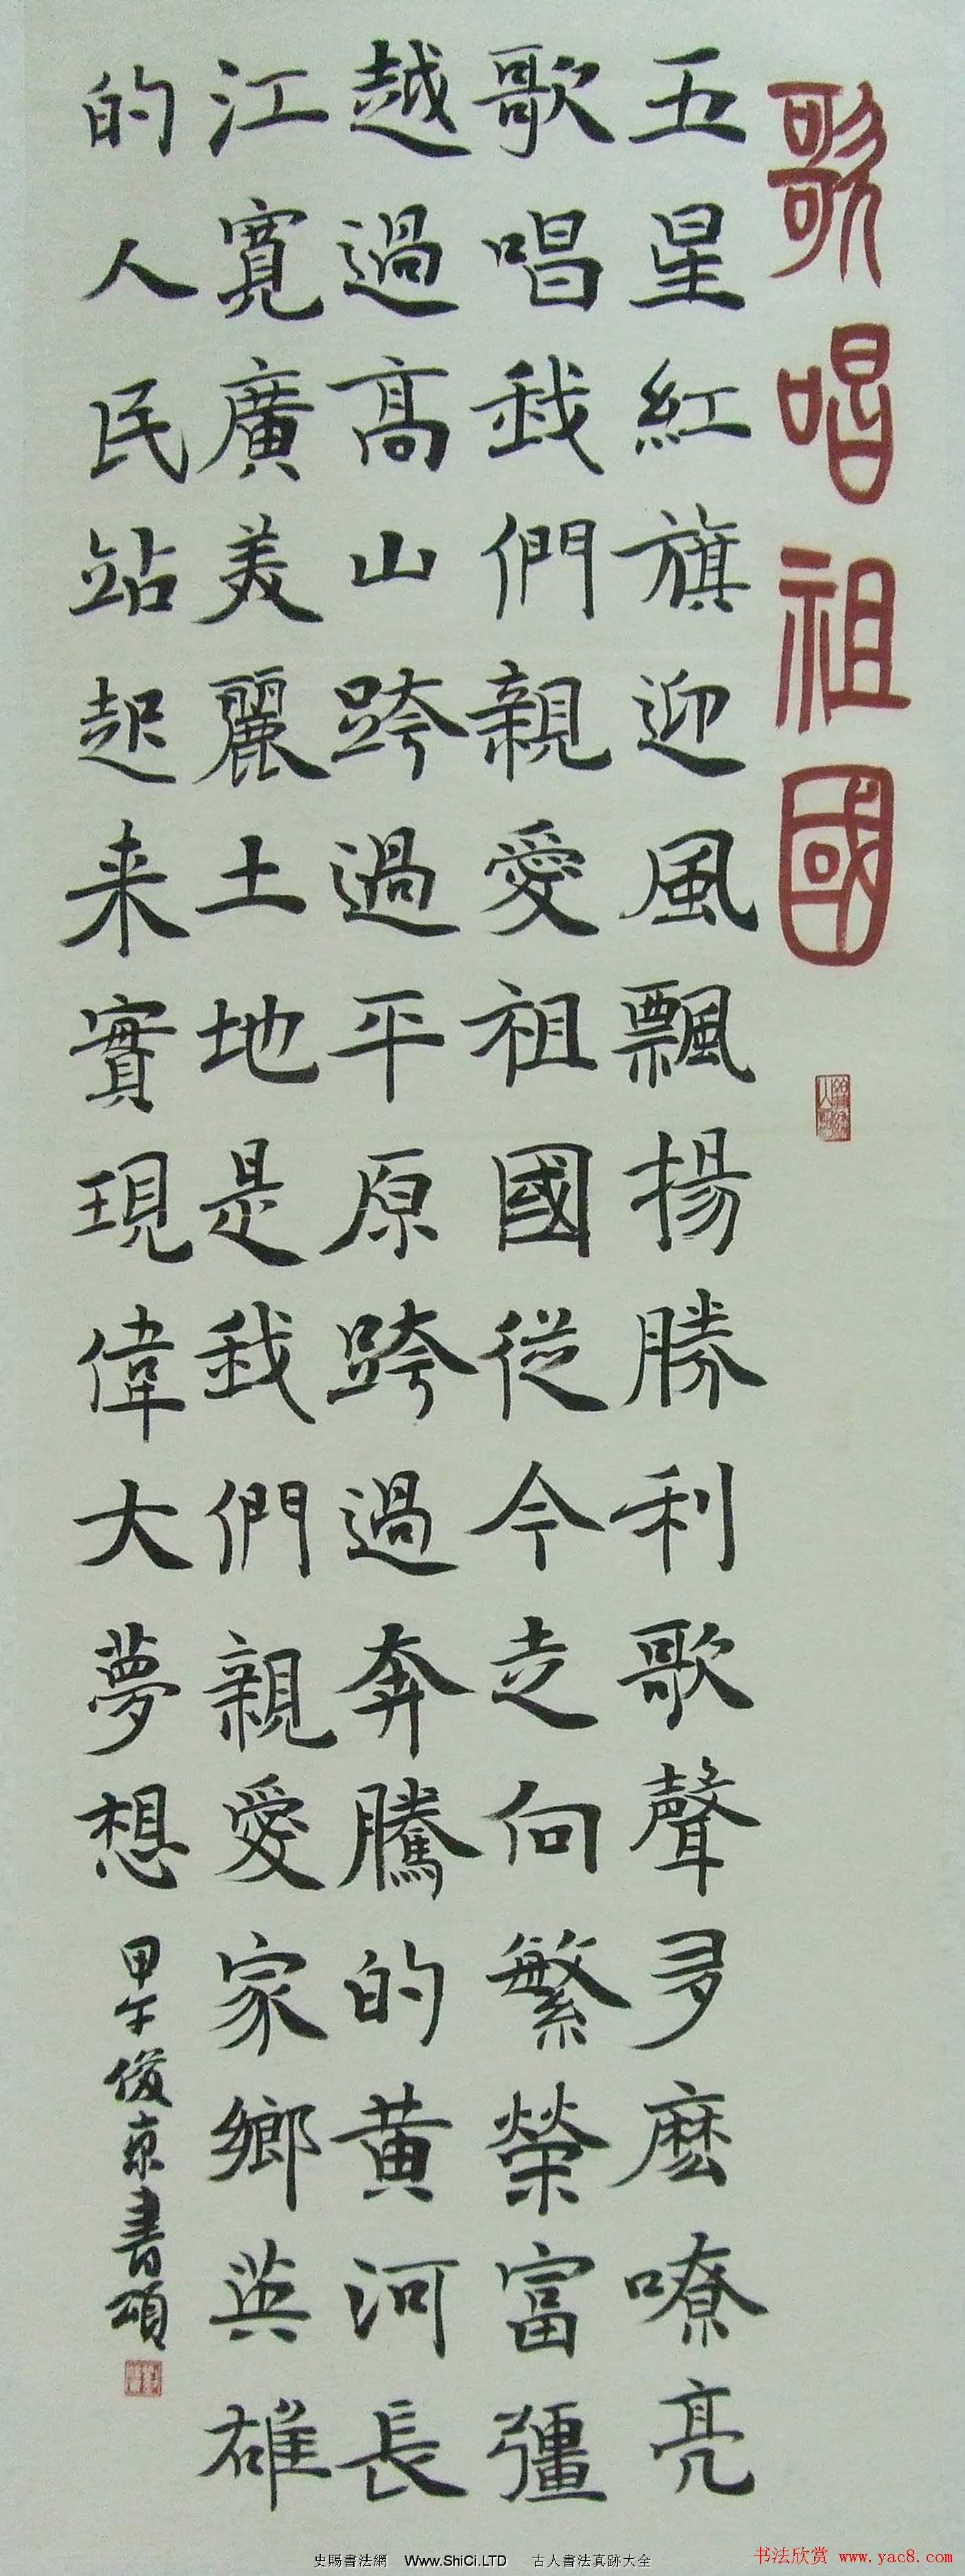 歌唱祖國
五星紅旗迎風飄揚勝利歌聲多麼嘹亮
歌唱我們親愛祖國從今走向繁榮富彊
越過高山跨過平原跨過奔騰的黄河長
江寬廣美麗土地是我們親愛家鄉英雄
的人民站起来實現偉大夢想
甲午俊京書頌
史賜書法網 Www.ShiCi.LTD 古人書法真跡大全
书法欣赏 www.yac8.com